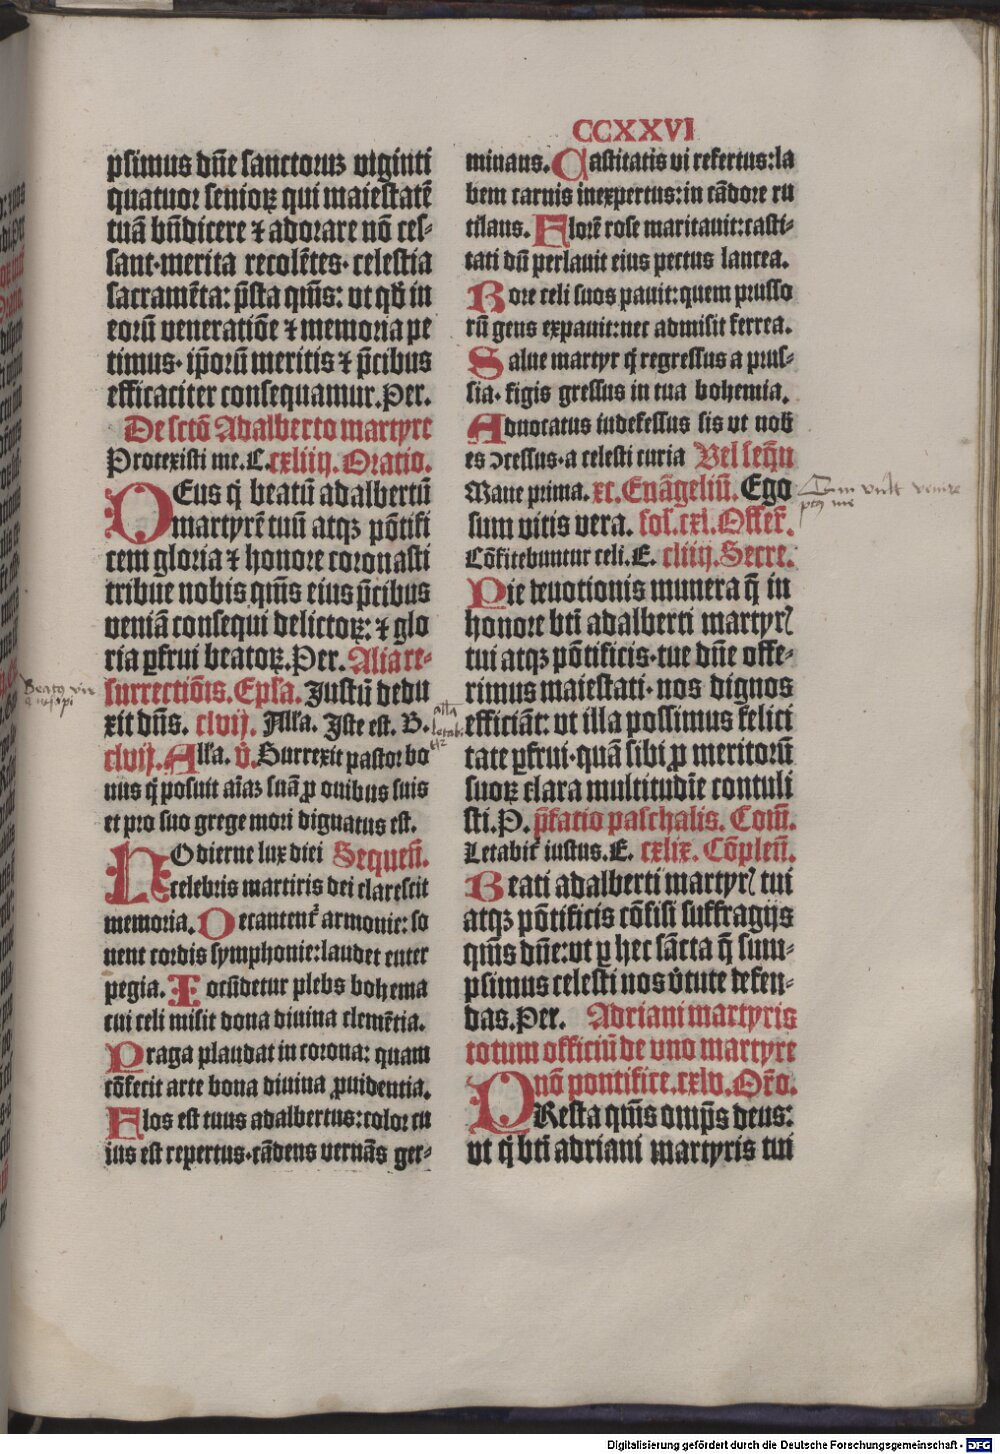 CCXXVI
psimus dn̄e sanctoruꝫ viginti
quatuor senioꝝ qui maiestatē
tuā bn̄dicere ⁊ adorare nō ces-
sant·merita recolētes·celestia
sacramēta: p̄sta qm̄s: vt qđ in
eorū veneratiōe ⁊ memoria pe
timus· ip̄orū meritis ⁊ p̄cibus
efficaciter consequamur. Per.
De sctō Adalberto martyre
Protexisti me. C. cxliiij. Oratio.
DEus q̇ beatū adalbertū
martyrē tuū atqꝫ pōtifi
cem gloria ⁊ honore coronasti
tribue nobis qm̄s eius p̄cibus
veniā consequi delictoꝝ: ⁊ glo
ria ꝑfrui beatoꝝ. Per. Alia re-
surrectiōis. Epsa. Justū dedu
xit dn̄s. clvij. Alla. Iste est. B.
clvij. Alla. v̄. Surrexit pastor bo
nus q̇ posuit aīaꝫ suā ꝓ ouibus suis
et pro suo grege mori dignatus est.
HOdierne lux diei Sequen̄.
celebris martiris dei clarescit
memoria. Decantent᷑ armonie: so
nent cordis symphonie: laudet euter
pegia. Iocūdetur plebs bohema
cui celi misit dona diuina clemētia.
Praga plaudat in corona: quam
cōfecit arte bona diuina ꝓuidentia.
Flos est tuus adalbertus: color cu
ius est repertus·cādens vernās ger-
minans. Castitatis vi refertus: la
bem carnis inexpertus: in cādore ru
tilans. Florē rose maritauit: casti-
tati dū perlauit eius pectus lancea.
Rore celi suos pauit: quem prusso
rū gens expauit: nec admisit ferrea.
Salue martyr q̇ regressus a prus-
sia· figis gressus in tua bohemia.
Aduocatus indefessus sis vt nob̄
es ↄcessus·a celesti curia Vel seqū
Mane prima. xc. Euāgeliū. Ego
sum vitis vera. fol. cxl. Offer̄.
Cōfitebuntur celi. E. cliiij. Secre.
Pie deuotionis munera q̄ in
honore bt̄i adalberti martyrꝭ
tui atqꝫ pōtificis·tue dn̄e offe-
rimus maiestati· nos dignos
efficiāt: vt illa possimus felici
tate ꝑfrui·quā sibi ꝓ meritorū
suoꝝ clara multitudīe contuli
sti. P. p̄fatio paschalis. Com̄.
Letabit᷑ iustus. E. cxlix. Cōplen̄.
Beati adalberti martyrꝭ tui
atqꝫ pōtificis cōfisi suffragijs
qm̄s dn̄e: vt ꝑ hec sācta q̄ sum-
psimus celesti nos v̄tute defen-
das. Per. Adriani martyris
totum officiū de vno martyre
nō pontifice. cxlv. Or̄o.
PResta qm̄s omp̄s deus:
vt q̇ bt̄i adriani martyris tui
Beatꝰ vir
alla
letabit᷑
Cum vult venire